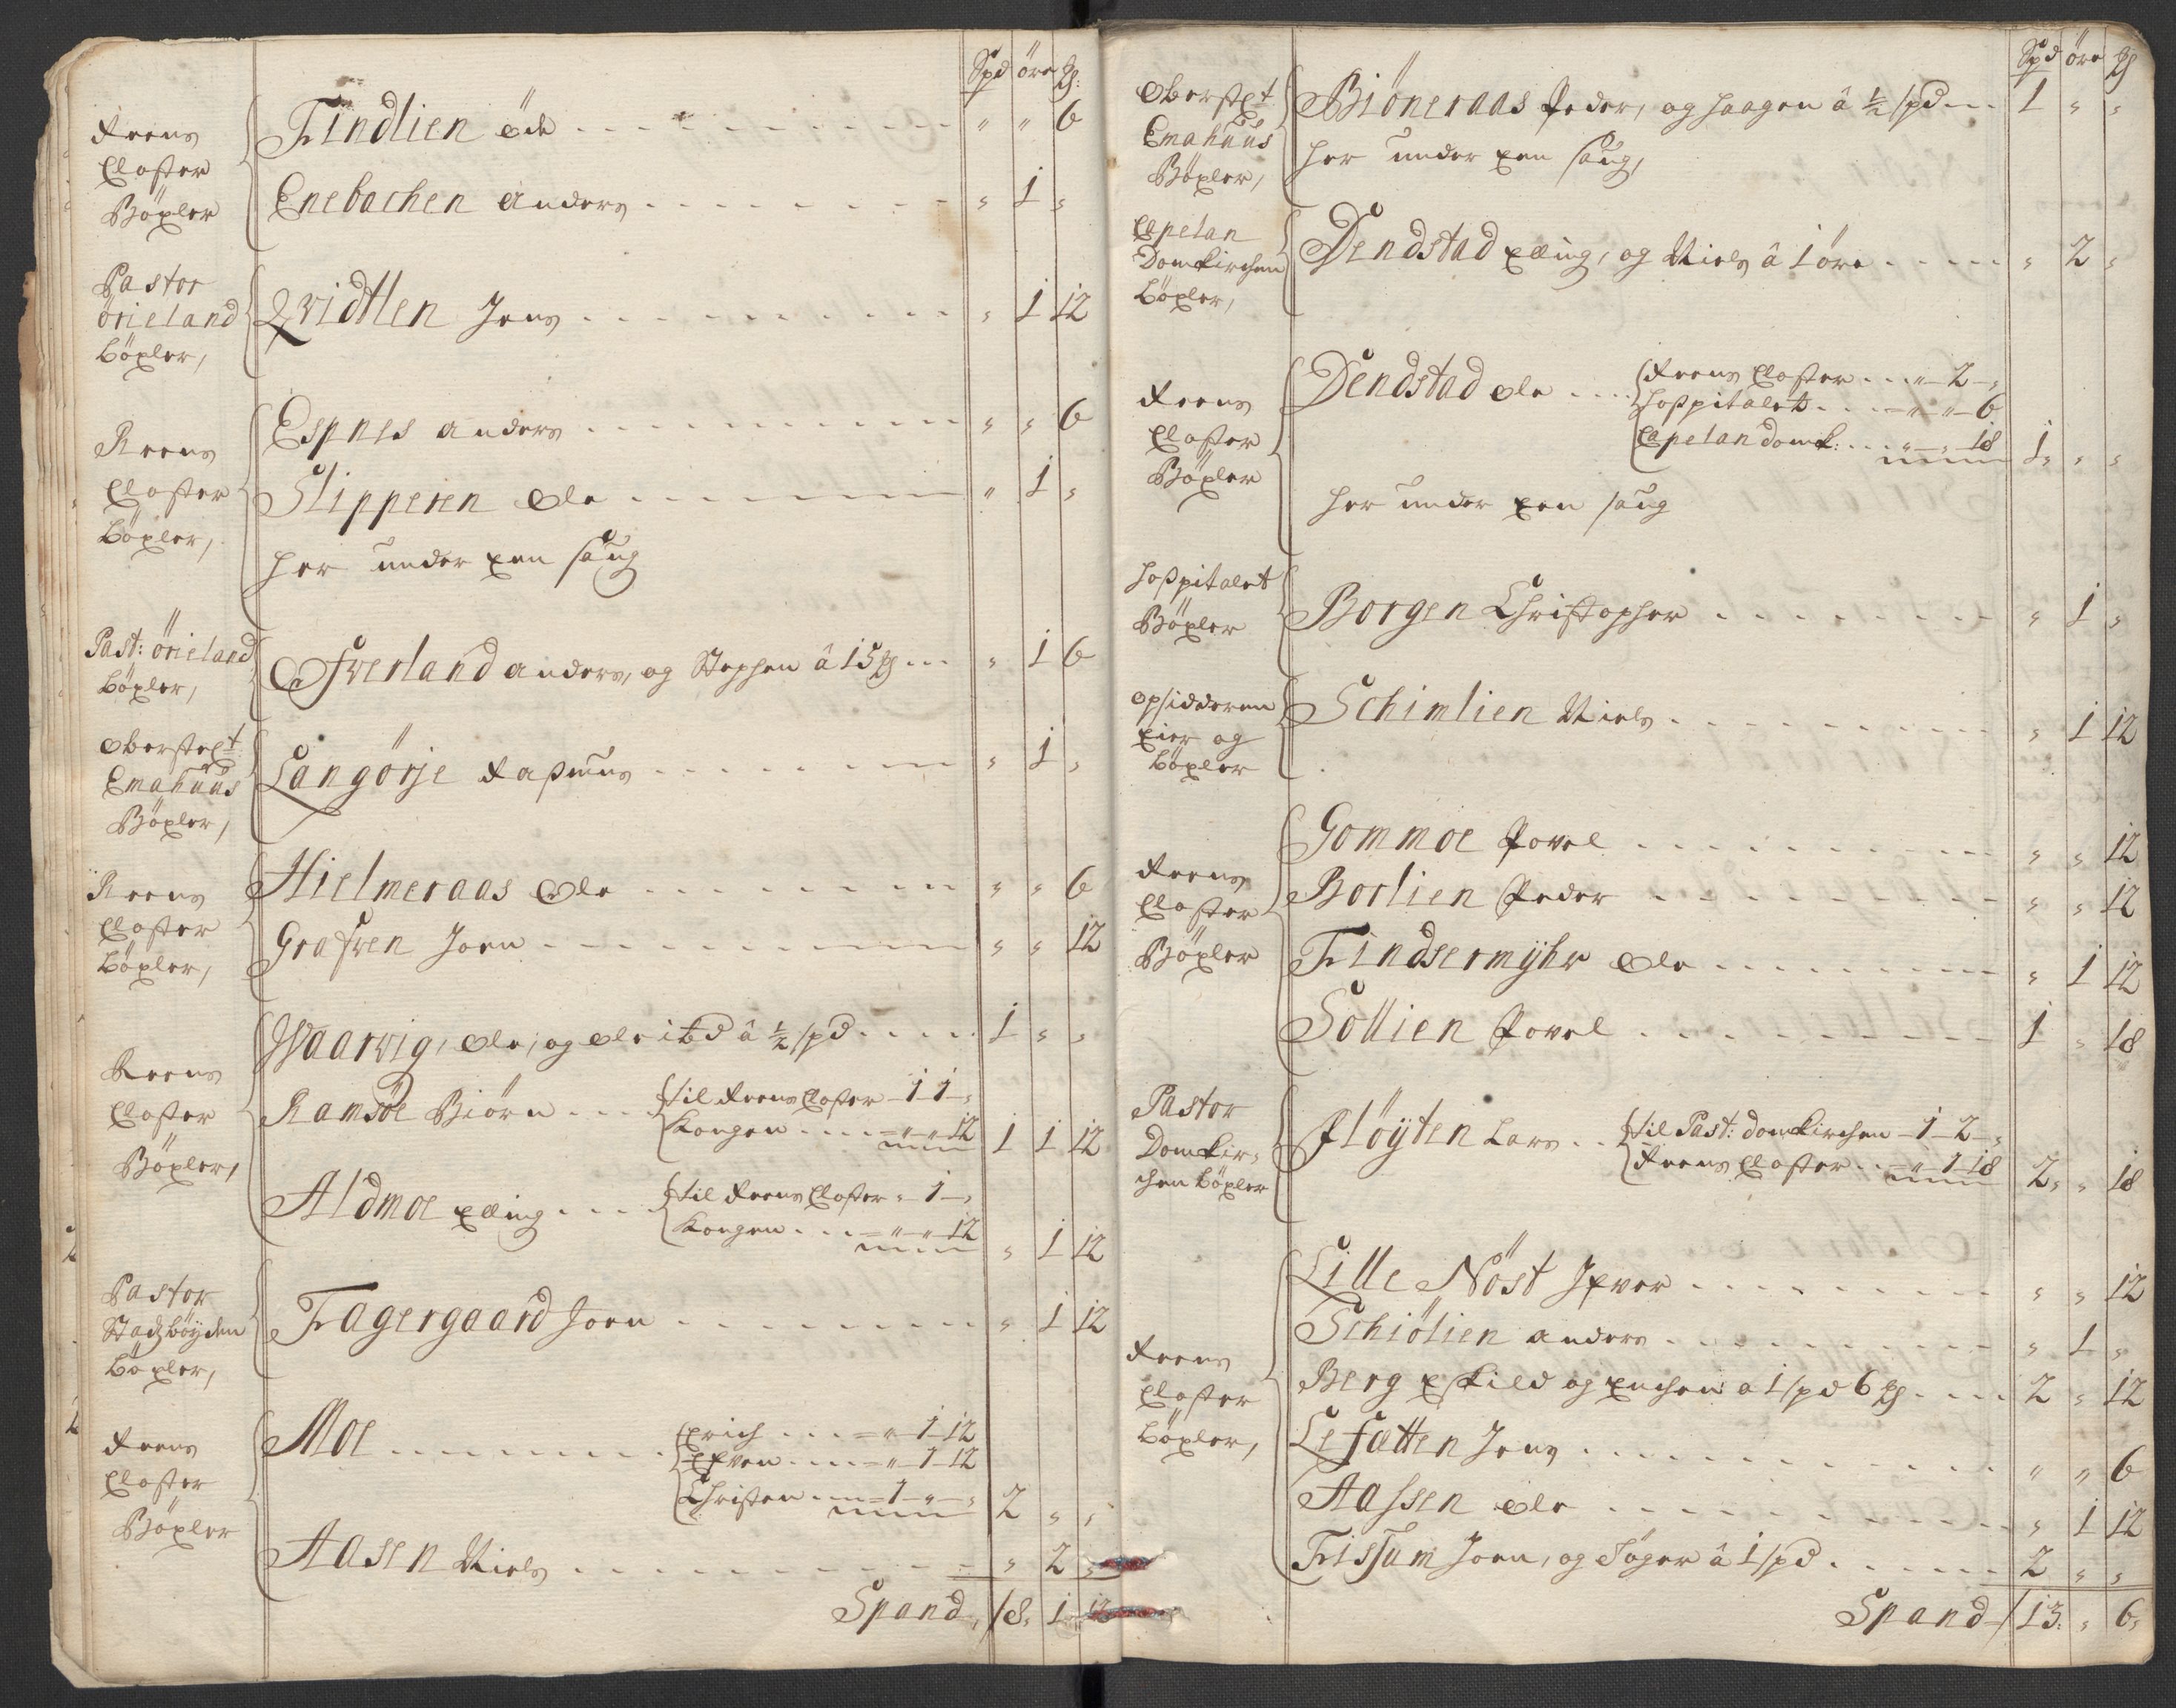 Spd öre ℔:
Reens
Closter
Böxler
Findlien öde . . . . . " " 6
Enebachen Anders . . . . . " 1 "
Pastor
örieland
böxler,
Qvidtlen Jens . . . . . " 1 12
Reens
Closter
böxler,
Espnes Anders . . . . . " " 6
Slipperen Ole . . . . . " 1 "
her under een saug
Past: örieland
böxler,
Ofverland Anders, og Stephen â 15 ℔ . . . " 1 6
Oberstlt
Emahuus
Böxler,
Langörje Rasmus . . . . . " 1 "
Reens
Closter
böxler,
Hielmeraas Ole . . . . . " " 6
Grafven Joen . . . . . " " 12
Reens
Closter
Böxler,
Waarvig, Ole, og Ole ibd â ½ spd . . . . 1 " "
Ramsöe Biörn . . . til Reens Closter - 1 1 "
Kongen . . . . " " 12 1 1 12
Aldmoe Elling . . . . til Reens Closter " 1 "
Kongen . . . " " 12 " 1 12
Pastor
Stadzböyden
böxler,
Fagergaard Joen . . . . . " 1 12
Reens
Closter
Böxler
Moe . . . . . Erich . . . " 1 12
Efven . . . . " 1 12
Christen . . . 1 " " 2 " "
Aasen Niels . . . . . " 2 "
Spand, 18. 1 12
Spd öre ℔
Oberstlt
Emahuus
Böxler,
Biöneraas Peder, og Haagen â ½ spd . . . 1 " "
her under een saug,
Capelan
Domkirchen
böxler,
Dendstad Elling, og Niels â 1 öre . . . . . " 2 "
Reens
Closter
Böxler
Dendstad Ole . . . . Reens Closter . . . " 2 "
Hospitalet . . . " " 6
Capelan domk: . . . " " 18 1 " "
her under een saug
Hospitalet
Böxler
Borgen Christopher . . . . . " 1 "
Opsidderen
eier og
böxler
Schimlien Niels . . . . . " 1 12
Reens
Closter
Böxler
Gommoe Povel . . . . . " " 12
Borlien Peder . . . . . " " 12
Findsermyhr Ole . . . . . " 1 12
Sollien Povel . . . . . 1 " 18
Pastor
Domkir-
chen böxler
Pløyten Lars . . til Past: domkirchen - 1 - 2 "
Reens Closter . . " 1 18 2 " 18
Reens
Closter
böxler,
Lille Nöst Ifver . . . . . " " 12
Schiölien Anders . . . . . " 1 "
Berg Eskild og Enchen a 1 spd 6 ℔ . . . . 2 " 12
Lefætten Jens . . . . . " " 6
Aassen Ole . . . . . " 1 12
Fissum Joen, og Töger â 1 spd . . . . . 2 " "
Spand 13. " 6.